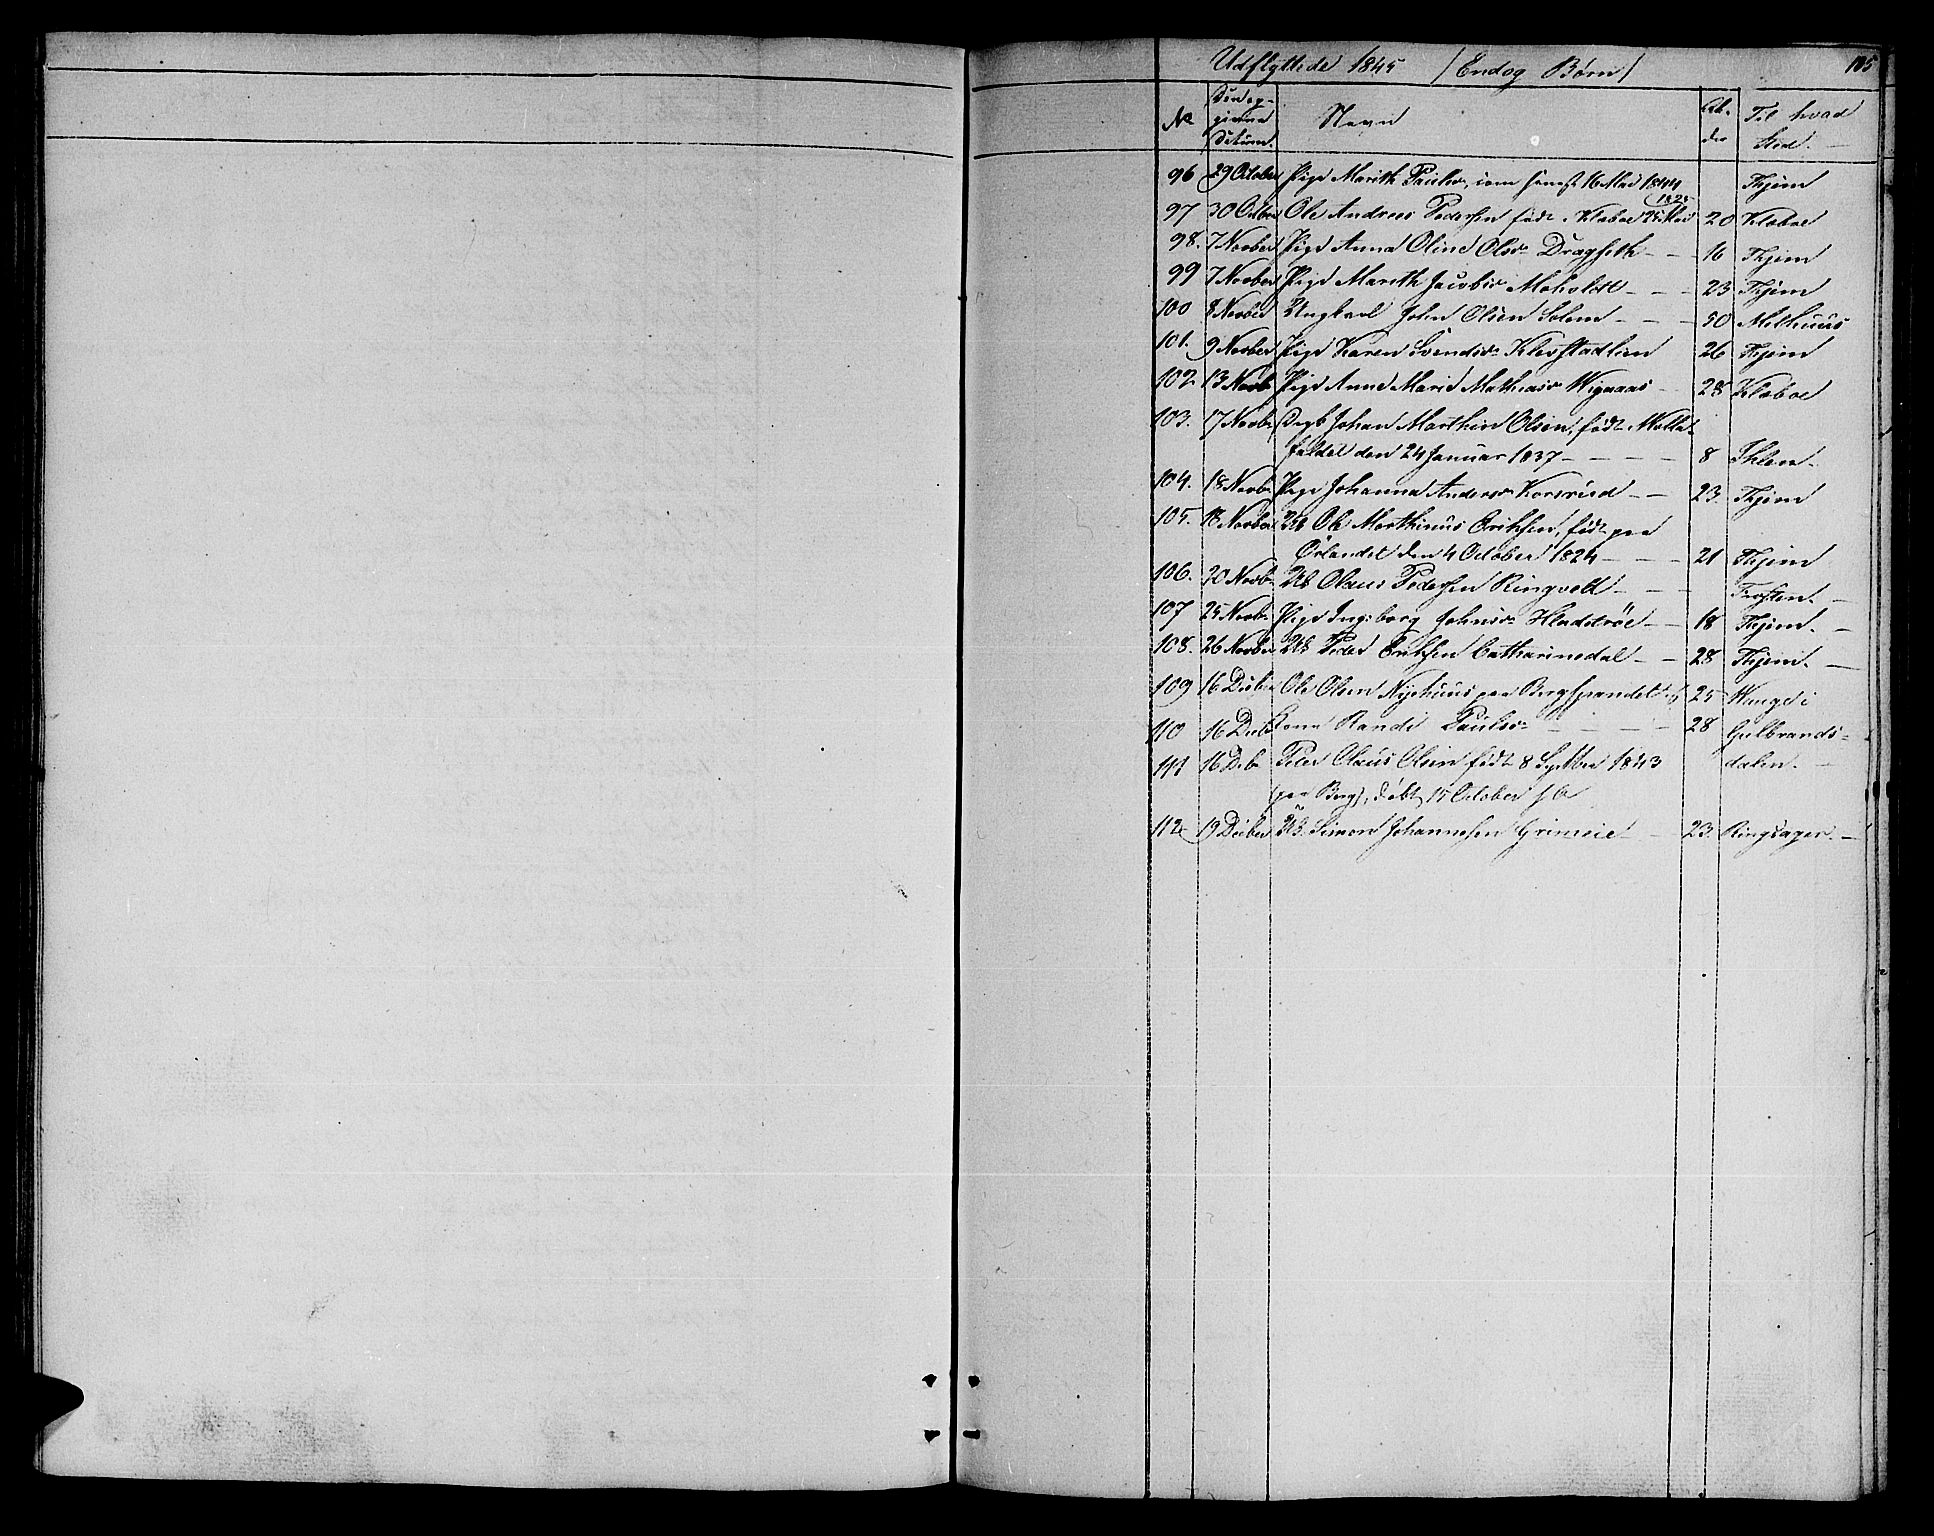 Udflyttede 1845 / Endog Børn / 105
No Den op-givne Datum. Navn Al-der Til hvad Sted.
96 29 October Pige Marith Paulsdr, 16 Mai 1844 Thjem
1825
97 30 Octber Ole Andreas Pedersen født i Klæboe 25 Mai 20 Klæboe
98. 7 Novber Pige Anna Oline Olsdr Dragseth - - 16 Thjem
99 7 Novber Pige Marith Jacobsdr Moholdt - - - 23 Thjem
100 8 Novber Ungkarl John Olsen Solem - - - 50 Melhuus
101. 9 Novber Pige Karen Svendsdr Klevstadlien 26 Thjem
102 13 Novb Pige Anne Marie Mathiasdr Wignaas - 28 Klæboe
103. 17 Novbr Johan Marthin Olsen, født
den 24 Januar 1837 - - - - 8 Ihlen.
104. 18 Novb. Pige Johanna Andersdr Korsrud - - 23 Thjem
105. 18 Novber UK Ole Marthinus Eriksen, født paa
Ørlandet den 4 October 1824 - - - 21 Thjem
106. 20 Novb. UK Olaus Pedersen Ringvold - - - Frosten. -
107 25 Novb. Pige Ingeborg Johnsdr Hladerøe - - 18 Thjem. -
108. 26 Novber UK Peder Eriksen Catharinedal - - 28 Thjem. -
109 16 Decber Ole Olsen Nyehuus paa Bergspandet 25 Waage i
110 16 Decb Kone Randi Paulsdr - - - - 28 Gulbrands-
111 16 Deb Peter Olaus Olsen født 8 Septber 1843 dalen. -
(paa Berg), døbt 15 October s. A.
112 19 Decber UK. Simon Johannesen Grimeie - 23 Ringsager. -